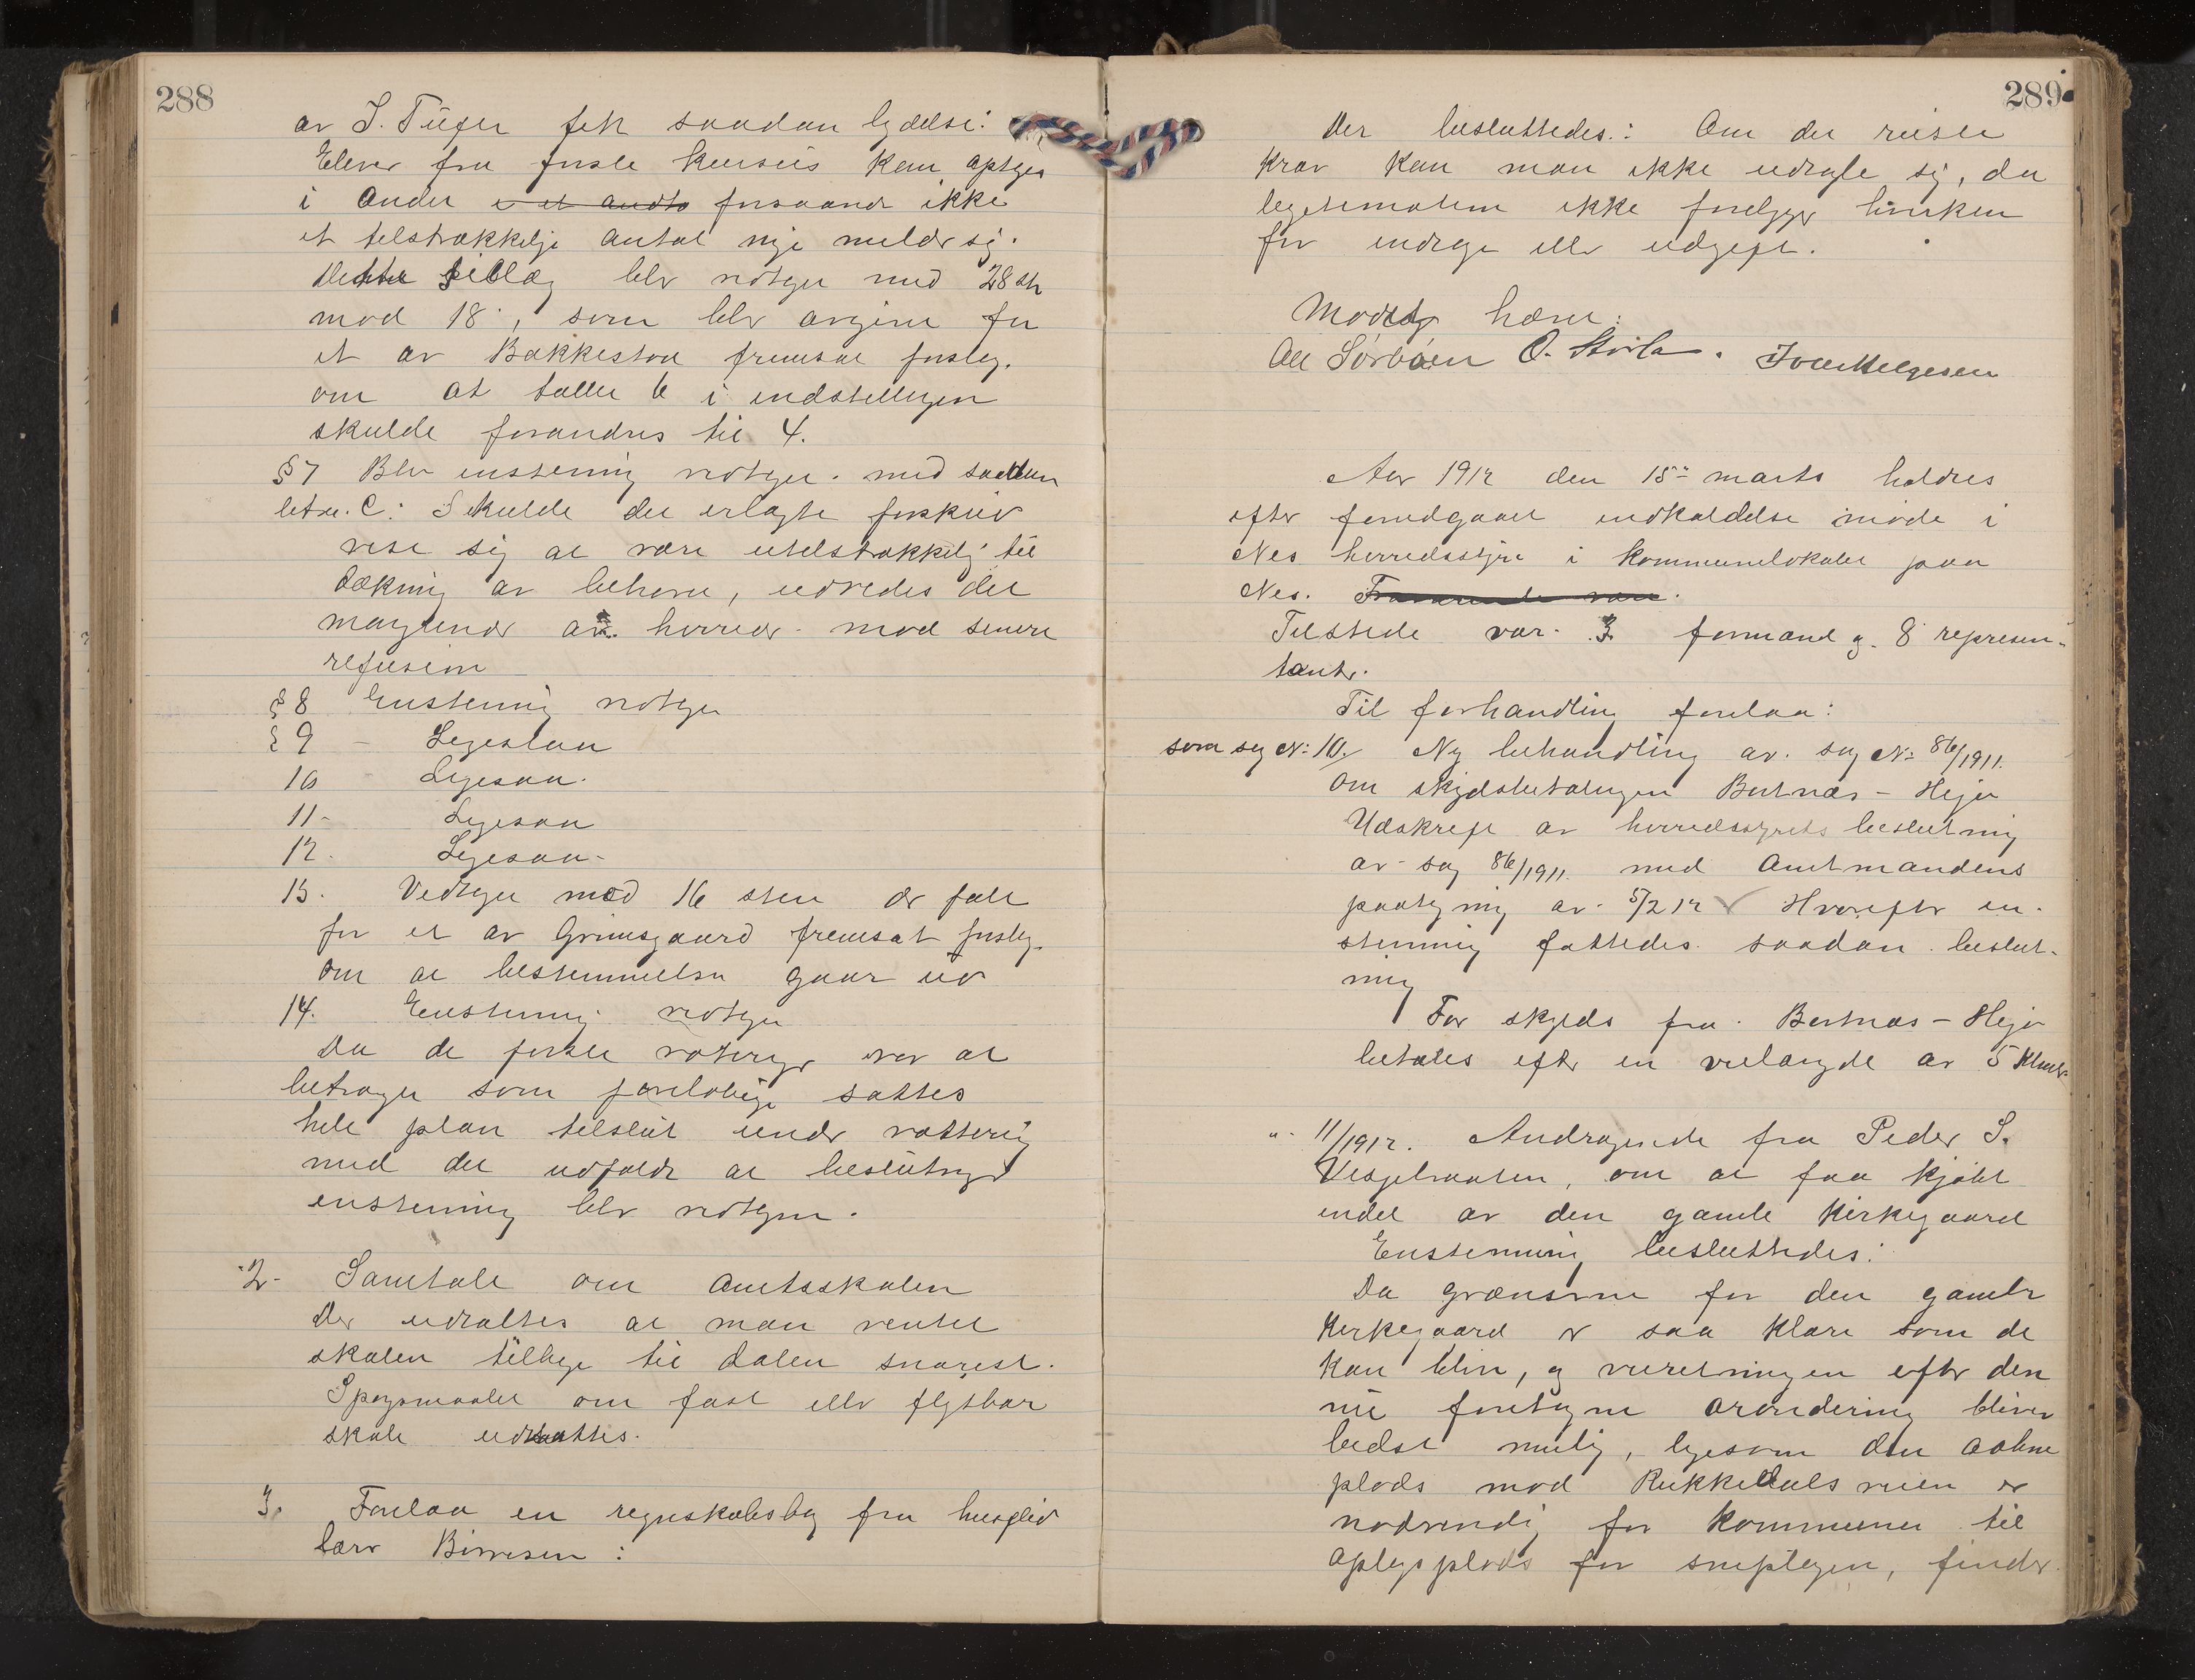 288
av J. Tufte fik saadan lydelse:
Elever fra første kursus kan optages
i andet i et andet forsaavidt ikke
et tilstrækkelig antal nye melder sig.
Dette tillæg blev vedtaget med 28 st
mod 18, som blev avgivne for
et av Bakkestad fremsat forslag
om at tallet 6 i indstillingen
skulde forandres til 4.
§ 7 Blev enstemmig vedtaget med saadan
litra C: Skulde det erlagte forskud
vise sig at være utilstrækkelig til
dækning av behovet, udredes det
manglende av herredet mod senere
refusion
§ 8 Enstemmig vedtaget
§ 9 - Ligesaa
10 Ligesaa.
11- Ligesaa
12. Ligesaa-
13. Vedtaget mod 16 stem der faldt
for et av Grimsgaard fremsat forslag
om at bestemmelsen gaar ud
14. Enstemmig vedtaget
Da de første voteringer var at
betragte som foreløbige sattes
hele plan tilslut under vottering
med det udfald at beslutninger
enstemmig blev vedtagen.
2- Samtale om Amtsskolen
Der udtaltes at man venter
skolen tillige til dalen snarest.
Spørgsmaalet om fast eller flytbar
skole udsattes.
3. Forelaa en regnskabsbog fra husflid
lærer
289
Der besluttedes: Om det reiste
krav kan man ikke udtale sig, da
legitimation ikke foreligger hverken
for indtægt eller udgift.
Mødet hævet:
Ole Sørbøen O. Iver Helgesen
Aar 1912 den 15de marts holdtes
efter foregaaet indkaldelse møde i
Nes herredsstyre i kommunelokalet paa
Nes. Fraværende var.
Tilstede var 3 formænd og 8 represen-
tanter.
Til forhandling forelaa:
som sag No 10. Ny behandling av sag No 86/1911.
om skydsbetalingen
Udskrift av herredsstyrets beslutning
av sag 86/1911. med Amtmandens
paategning av 5/2 12 Hvorefter en-
stemmig fattedes saadan beslut-
ning
For skyds fra
betales efter en veilængde av 5 klmtr.
"- 11/1912. Andragende fra Peder S.
om at faa kjøbt
endel av den gamle kirkegaard
Enstemmig besluttedes:
Da grænserne for den gamle
kirkegaard er saa klare som de
kan blive, og veiretningen efter den
nu foretagne arondering bliver
bedst mulig, ligesom den aabne
plads mod Rukkedalsveien er
nødvendig for kommunen til
oplagsplads for sneplogen, finder